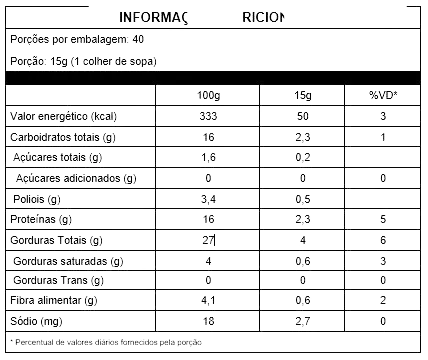 INFORMAÇ RICION
Porções por embalagem: 40
Porção: 15g (1 colher de sopa)
100g 15g %VD*
Valor energético (kcal) 333 50 3
Carboidratos totais (g) 16 2,3 1
Açúcares totais (g) 1,6 0,2
Açúcares adicionados (g) 0 0 0
Poliois (g) 3,4 0,5
Proteínas (g) 16 2,3 5
Gorduras Totais (g) 27 4 6
Gorduras saturadas (g) 4 0,6 3
Gorduras Trans (g) 0 0 0
Fibra alimentar (g) 4,1 0,6 2
Sódio (mg) 18 2,7 0
* Percentual de valores diários fornecidos pela porção